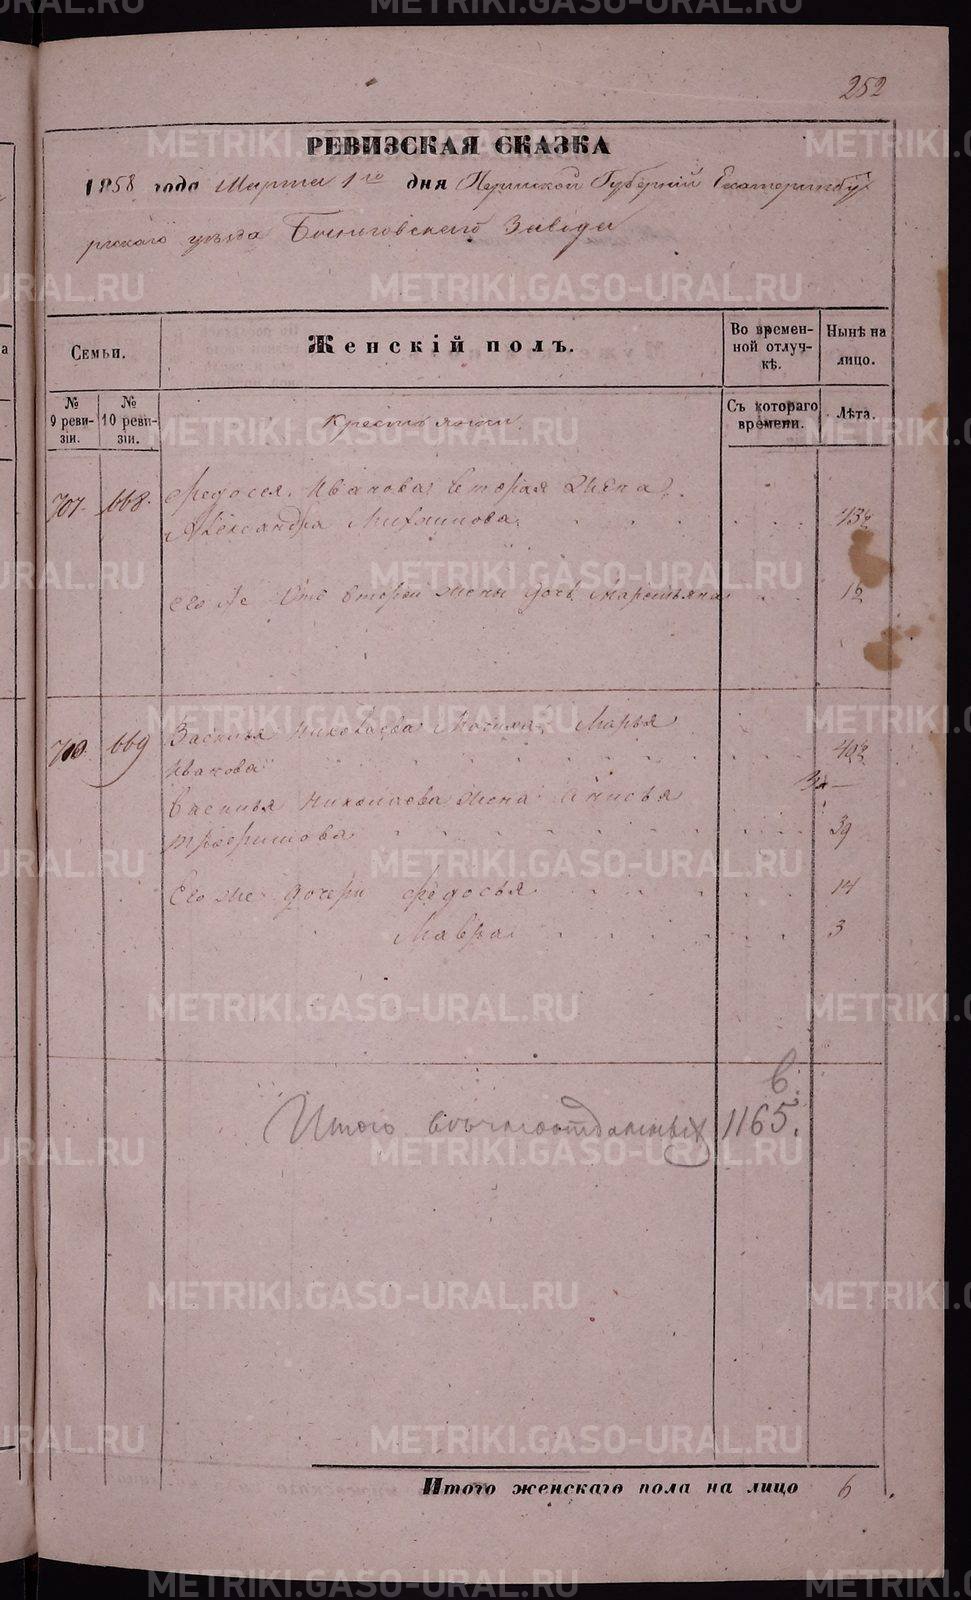 252
РЕВИЗСКАЯ СКАЗКА
1858 года Марта 1го дня Пермской Губерніи Екатеринбу
ргскаго уѣзда Завода
Семьи.
Женскій полъ.
Во времен-
ной отлуч-
кѣ.
Нынѣ на
лицо.
№
9 реви-
зіи.
№
10 реви-
зіи.
Крестьяне.
Съ котораго
времени.
Лѣта.
707. 668. Федосея Иванова вторая жена
Александра Михаилова
его же отъ второй жены дочь
669 Василья Николаева Марья
Иванова
Василья Николаева жена Анисья
Трофимова 39
Его же дочери Федосья 14
Мавра 3
6
Итого 1165.
Итого женскаго пола на лицо 6
METRIKI.GASO-URAL.RU